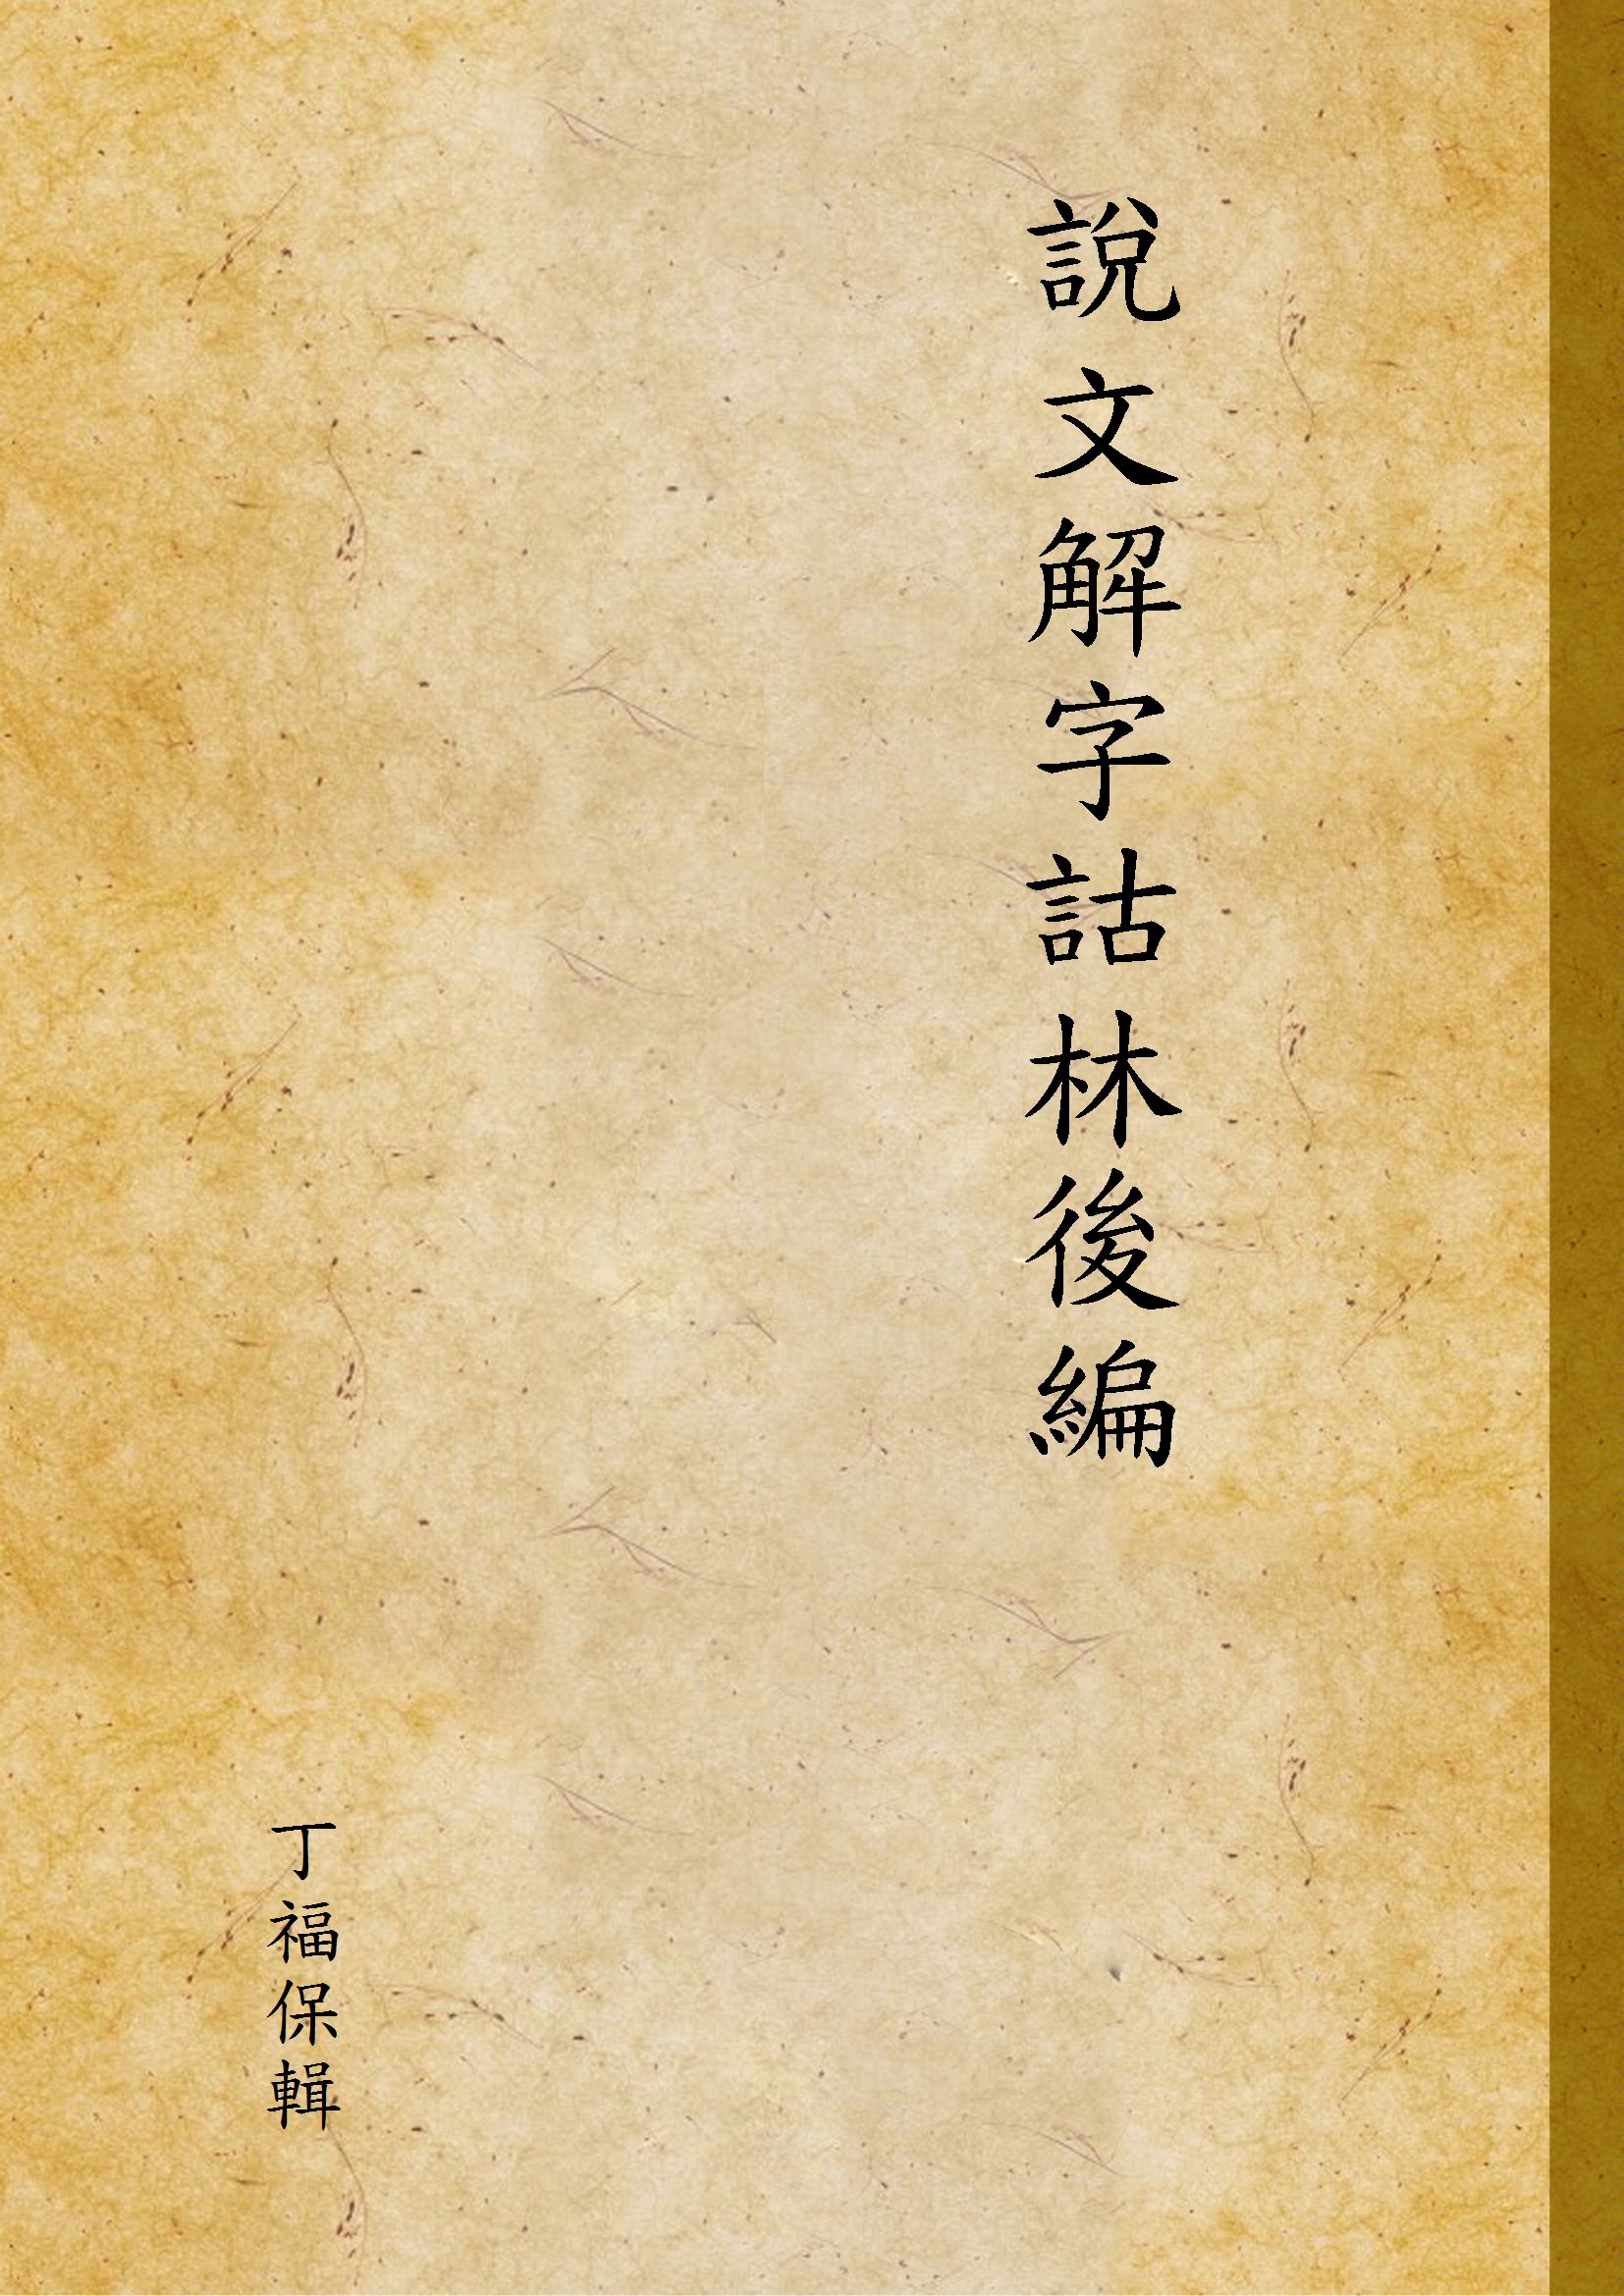 說文解字詁林後編
丁福保輯